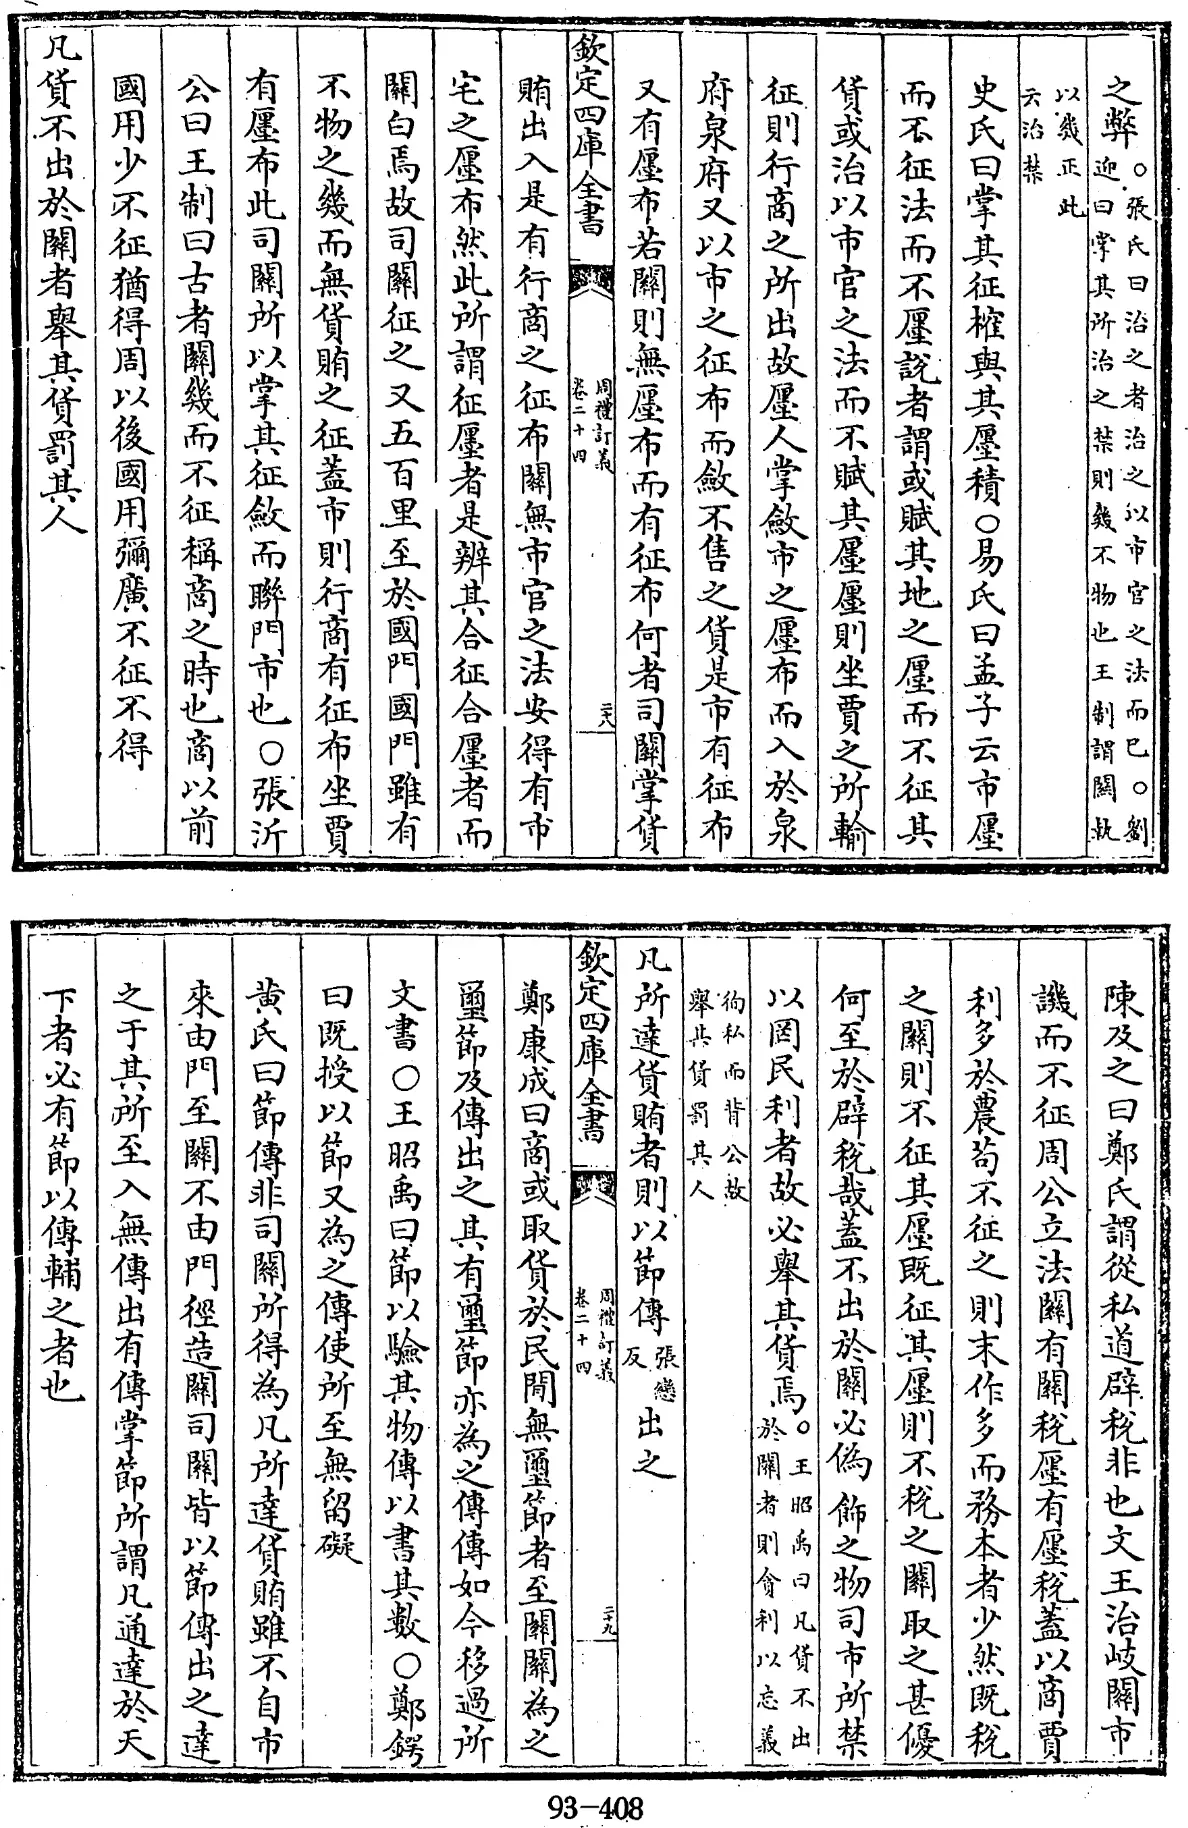 之弊○張氏曰治之者治之以市官之法而已○劉
迎曰掌其所治之禁則幾不物也王制謂關執
以幾正此
云治禁
史氏曰掌其征榷與其廛積○易氏曰孟子云市廛
而不征法而不廛說者謂或賦其地之廛而不征其
貨或治以市官之法而不賦其廛廛則坐賈之所輸
征則行商之所出故廛人掌斂市之廛布而入於泉
府泉府又以市之征布而斂不售之貨是市有征布
又有廛布若關則無廛布而有征布何者司關掌貨
欽定四庫全書
周禮訂義
卷二十四
二十八
賄出入是有行商之征布關無市官之法安得有市
宅之廛布然此所謂征廛者是辨其合征合廛者而
關白焉故司關征之又五百里至於國門國門雖有
不物之幾而無貨賄之征蓋市則行商有征布坐賈
有廛布此司關所以掌其征斂而聯門市也○張沂
公曰王制曰古者關幾而不征稱商之時也商以前
國用少不征猶得周以後國用彌廣不征不得
凡貨不出於關者舉其貨罰其人
陳及之曰鄭氏謂從私道辟稅非也文王治岐關市
譏而不征周公立法關有關稅廛有廛稅蓋以商賈
利多於農苟不征之則末作多而務本者少然既稅
之關則不征其廛既征其廛則不稅之關取之甚優
何至於辟稅哉蓋不出於關必偽飾之物司市所禁
以罔民利者故必舉其貨焉○王昭禹曰凡貨不出
於關者則貪利以忘義
徇私而背公故
舉其貨罰其人
凡所達貨賄者則以節傳張戀
反出之
欽定四庫全書
周禮訂義
卷二十四
二十九
鄭康成曰商或取貨於民間無璽節者至關關為之
璽節及傳出之其有璽節亦為之傳傳如今移過所
文書○王昭禹曰節以驗其物傳以書其數○鄭鍔
曰既授以節又為之傳使所至無留礙
黃氏曰節傳非司關所得為凡所達貨賄雖不自市
來由門至關不由門徑造關司關皆以節傳出之達
之于其所至入無傳出有傳掌節所謂凡通達於天
下者必有節以傳輔之者也
93-408